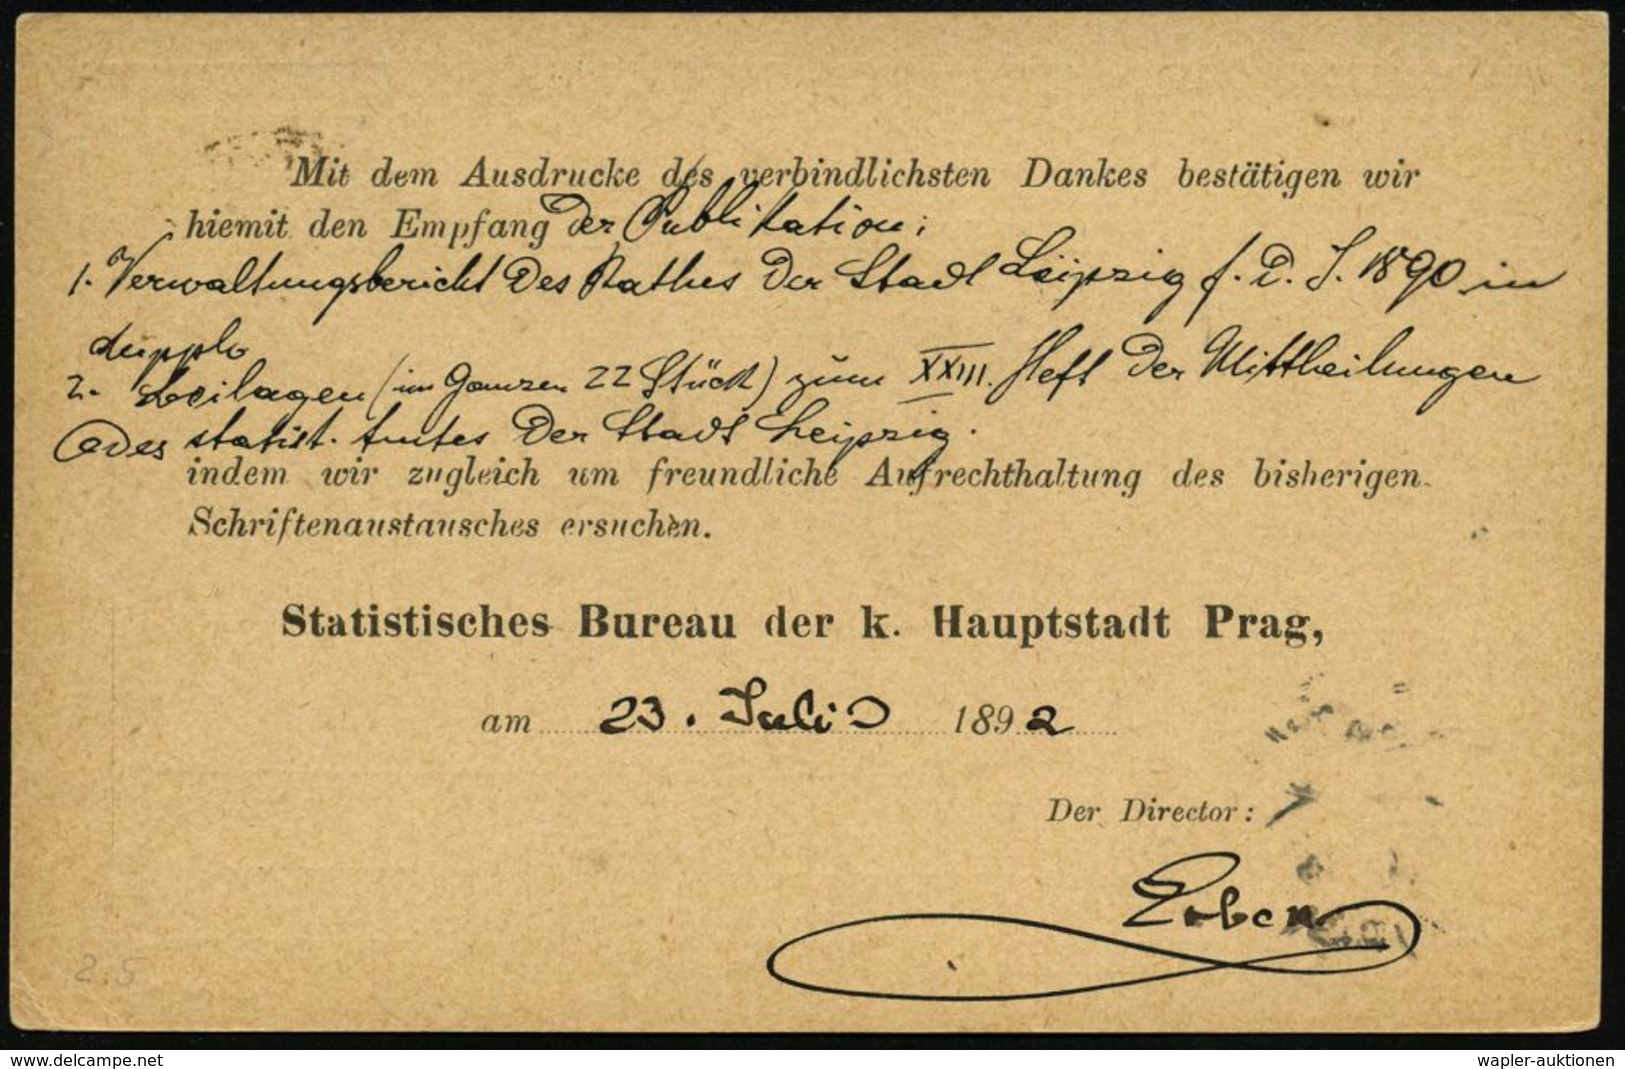 Mit dem Ausdrucke des verbindlichsten Dankes bestätigen wir
hiemit den Empfang der Publikation:
1. Verwaltungsbericht des Rathes der Stadt Leipzig f. d. J. 1890 in
dupplo
2. Beilagen (im Ganzen 22 Stück) zum XXIII. Heft der Mittheilungen
des statist. Amtes der Stadt Leipzig.
indem wir zugleich um freundliche Aufrechthaltung des bisherigen
Schriftenaustausches ersuchen.
Statistisches Bureau der k. Hauptstadt Prag,
am 23. Juli 1892
Der Director:
Erben
2.5
www.delcampe.net
wapler-auktionen